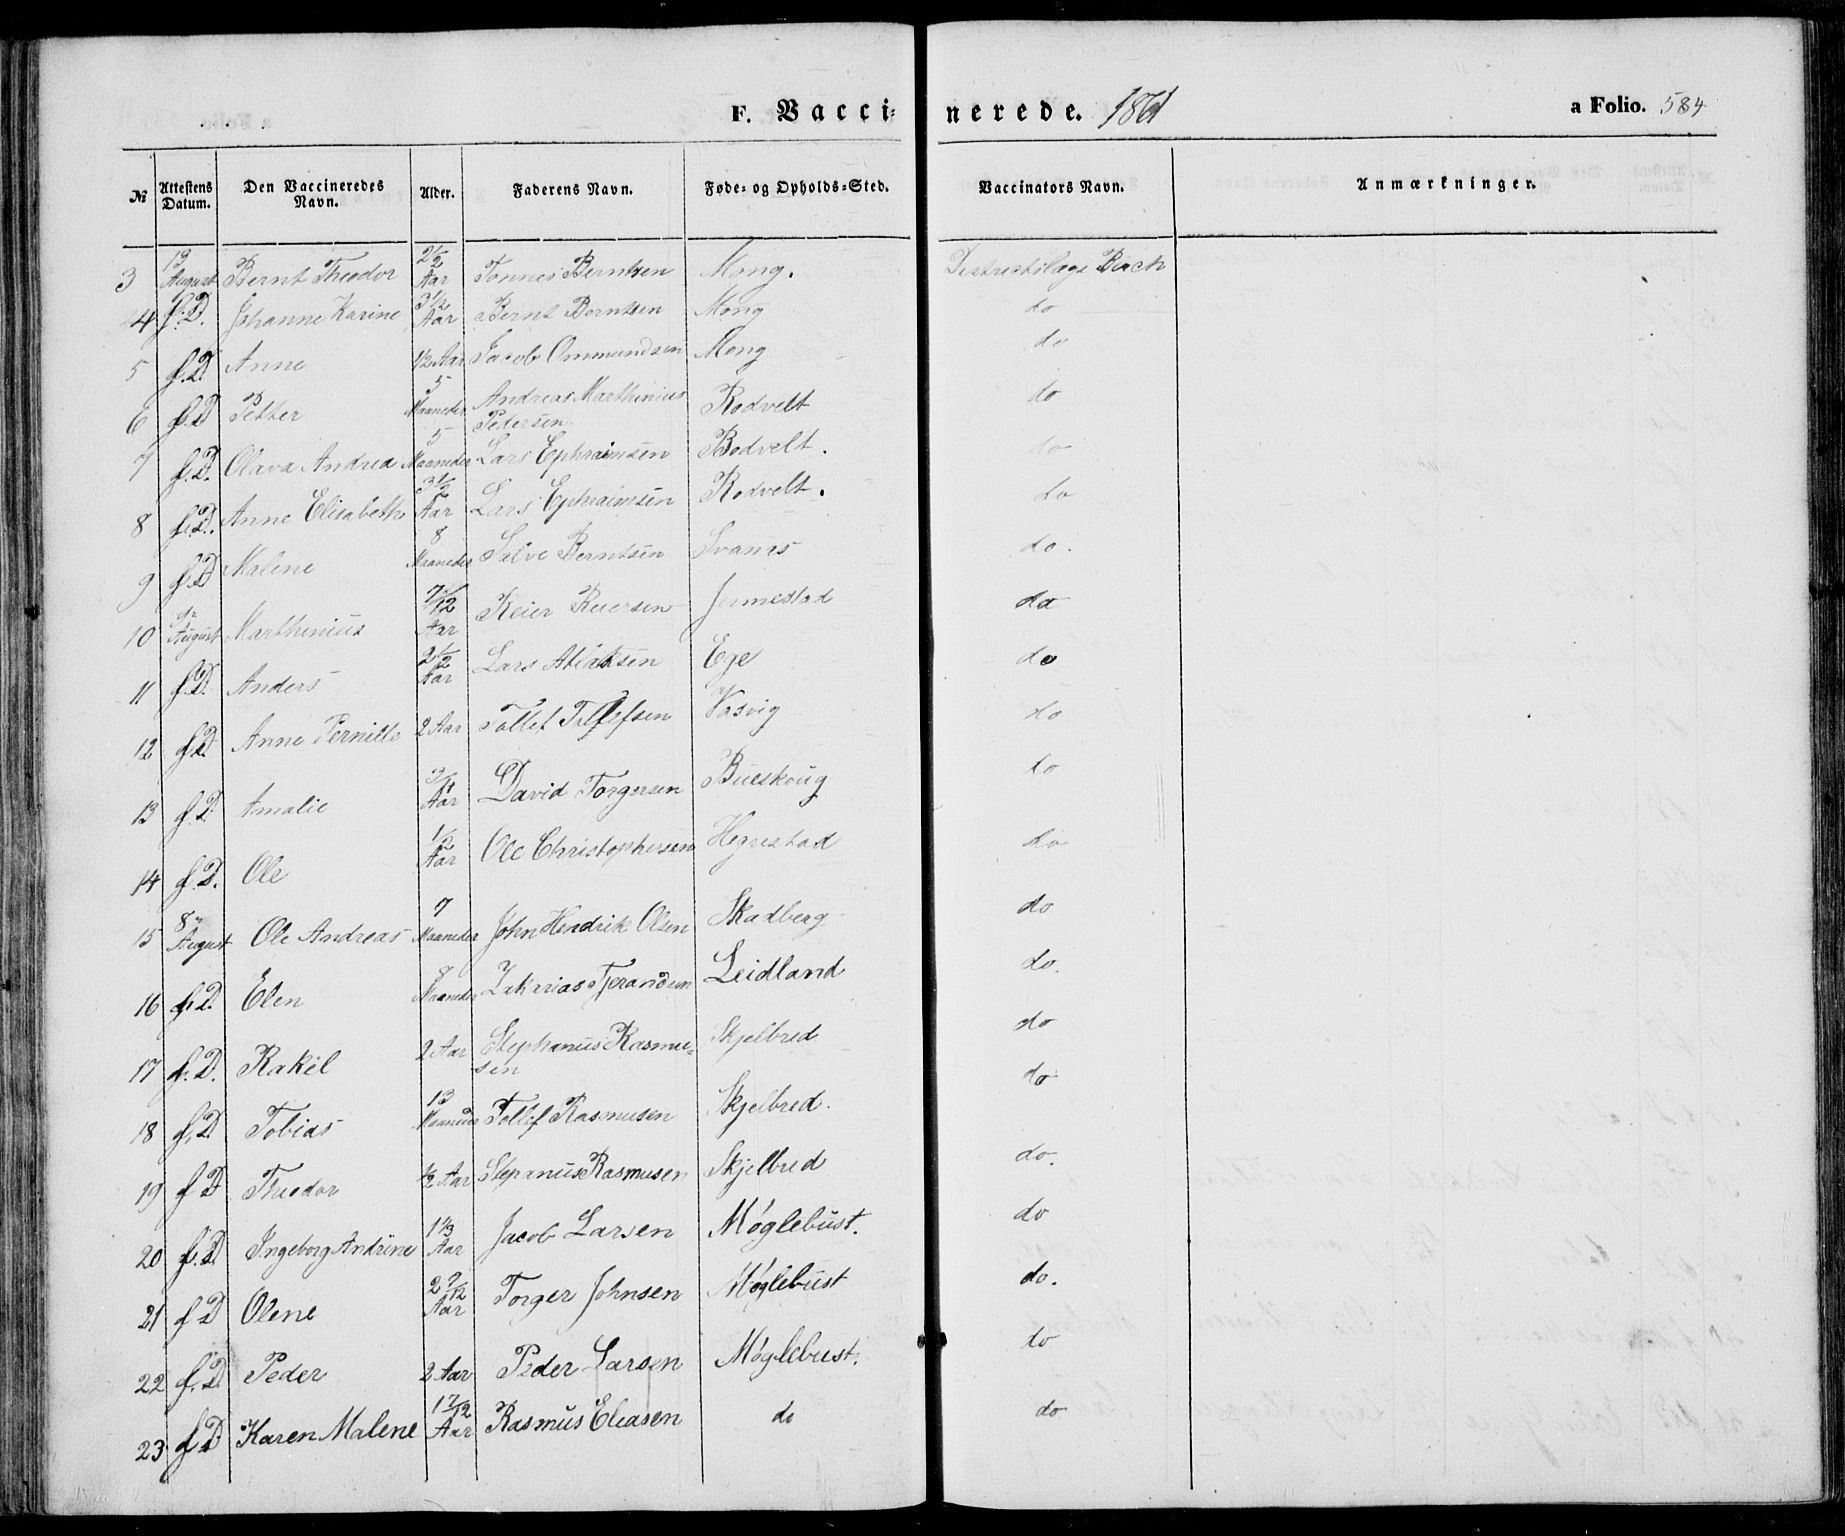 F. Vaccinerede. 1861 a Folio. 584
№ Attestens Datum. Den Vaccineredes Navn. Alder. Faderens Navn. Føde- og Opholds-Sted. Vaccinators Navn. Anmærkninger.
3 13 August Bernt Theodor 2½ Aar Tønnes Berntsen Mong. Districtslæge Buch
4 f.D. Johanne Karine 3½ Aar Bernt Berntsen Mong do
5 f.D. Anne ½ Aar Jacob Ommundsen Mong do
6 f.D Petter 5 Maaneder Andreas Marthinius Pedersen Rodvelt do
7 f.D. Olava Andrea 5 Maaneder Lars Ephraimsen Rodvelt. do
8 f.D. Anne Elisabeth 3½ Aar Lars Ephraimsen Rodvelt. do
9 f.D Malene 8 Maaneder Salve Berntsen Svanes do.
10 August Marthinius 7/12 Aar Reier Reiersen Jermestad do
11 f.D. Anders 2½ Aar Lars Ege do
12 f.D. Anne Pernille 2 Aar Tollef Tollefsen Vasvig do
13 f.D. Amalie ¾ Aar David Torgersen Bueskoug do
14 f.D. Ole ½ Aar Ole Christophersen Hegrestad do
15 8de August Ole Andreas 7 Maaneder John Hendrik Olsen Skadberg do
16 f.D. Elen 8 Maaneder Zakarias Tjerandsen Leidland do.
17 f.D. Rakel 2 Aar Stephanus Rasmusen Skjelbred do
18 f.D Tobias 13 Maaneder Tollef Rasmusen Skjelbred. do
19 f D Theodor ½ Aar Stepanus Rasmusen Skjelbred do.
20 f.D. Ingeborg Andrine 1⅓ Aar Jacob Larsen Møglebust. do
21 f D Olene 2 7/12 Aar Torger Johnsen Møglebust do.
22 f.D. Peder 2 Aar Peder Larsen Møglebust. do
23 f D Karen Malene 1 7/12 Aar Rasmus Eliasen do do